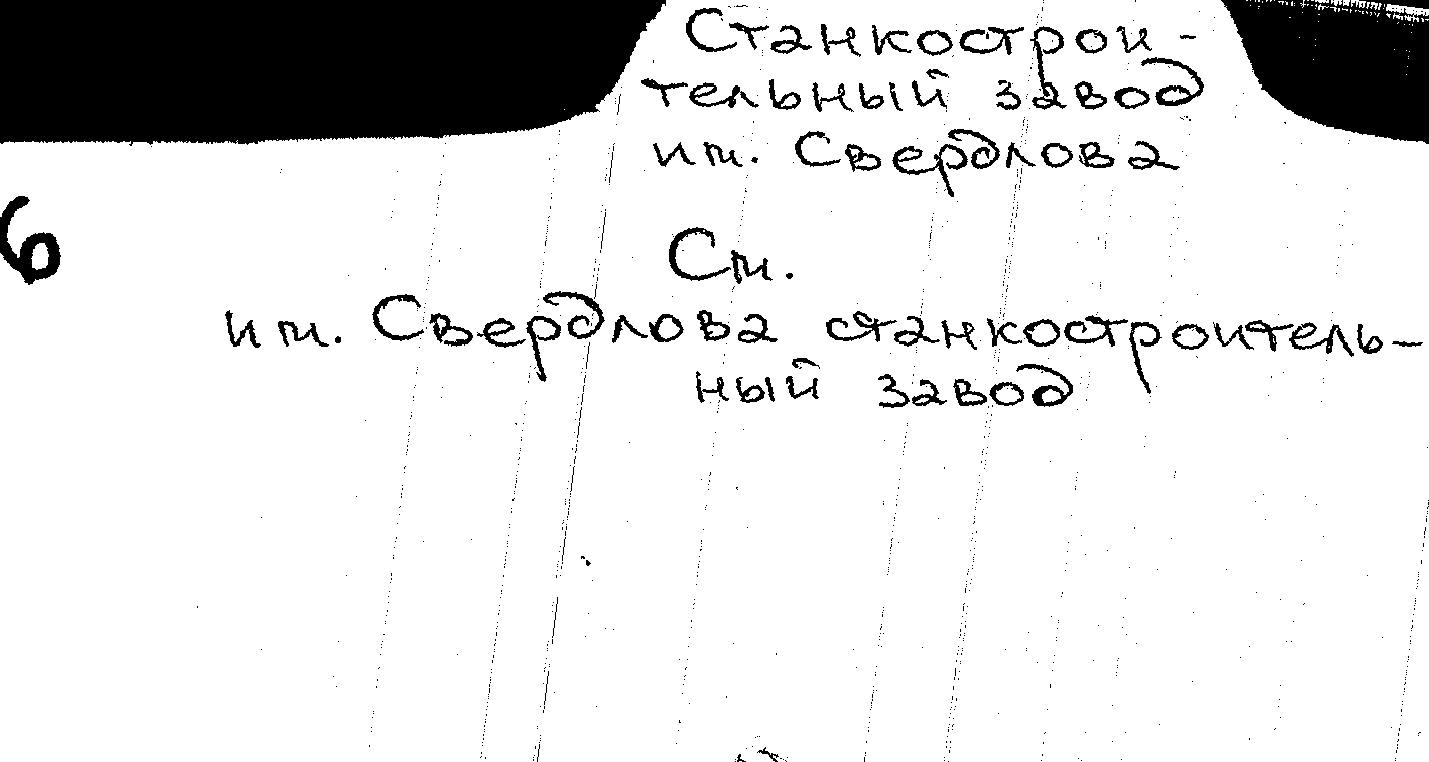 Станкострои-
тельный завод
им. Свердлова
6
См.
им. Свердлова станкостроитель-
ный завод